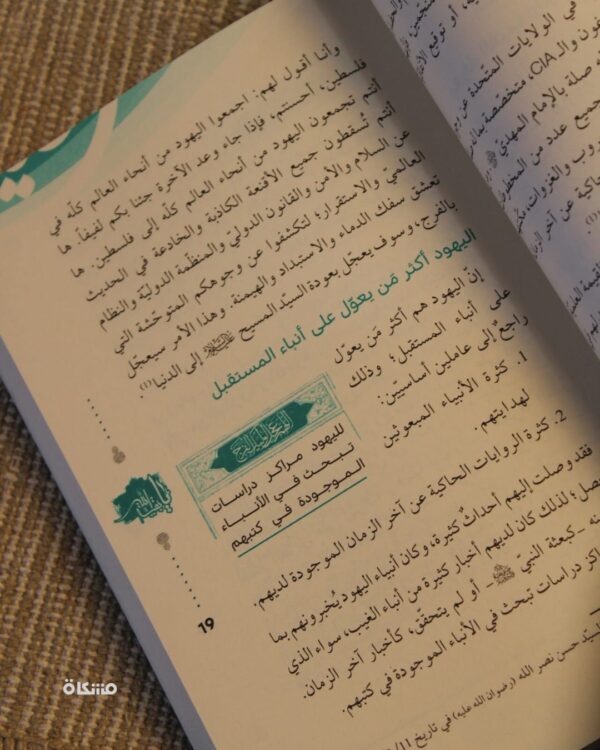 وأنا أقول لهم: اجمعوا اليهود من أنحاء العالم كلّه في
فلسطين، أحسنتم، فإذا جاء وعد الآخرة جئنا بكم لفيفاً. ها
أنتم تجمعون اليهود من أنحاء العالم كلّه إلى فلسطين. ها
أنتم تُسقطون جميع الأقنعة الكاذبة والخادعة في الحديث
عن السلام والأمن والقانون الدوليّ والمنظّمة الدوليّة والنظام
العالميّ والاستقرار؛ لتكشفوا عن وجوهكم المتوحّشة التي
تعشق سفك الدماء والاستبداد والهيمنة. وهذا الأمر سيعجّل
بالفرج، وسوف يعجّل بعودة السيّد المسيح إلى الدنيا(١).
اليهود أكثر مَن يعوّل على أنباء المستقبل
إنّ اليهود هم أكثر مَن يعوّل
على أنباء المستقبل؛ وذلك
راجعٌ إلى عاملين أساسيّين:
1. كثرة الأنبياء المبعوثين
لهدايتهم.
2. كثرة الروايات الحاكية عن آخر الزمان الموجودة لديهم.
لليهود مراكز دراسات
تبحث في الأنباء
الموجودة في كتبهم
فقد وصلت إليهم أحداثٌ كثيرة، وكان أنبياء اليهود يُخبرونهم بما
لذلك كان لديهم أخبار كثيرة من أنباء الغيب، سواء الذي
كبعثة النبيّ - أو لم يتحقق، كأخبار آخر الزمان.
دراسات تبحث في الأنباء الموجودة في كتبهم.
السيّد حسن نصر الله (رضوان الله عليه) في تاريخ
19
مشكاة
في الولايات المتّحدة عن
والـ CIA، متخصّصة
صلة بالإمام المهديّ
جميع عدد من
والغزوات،
عن آخر